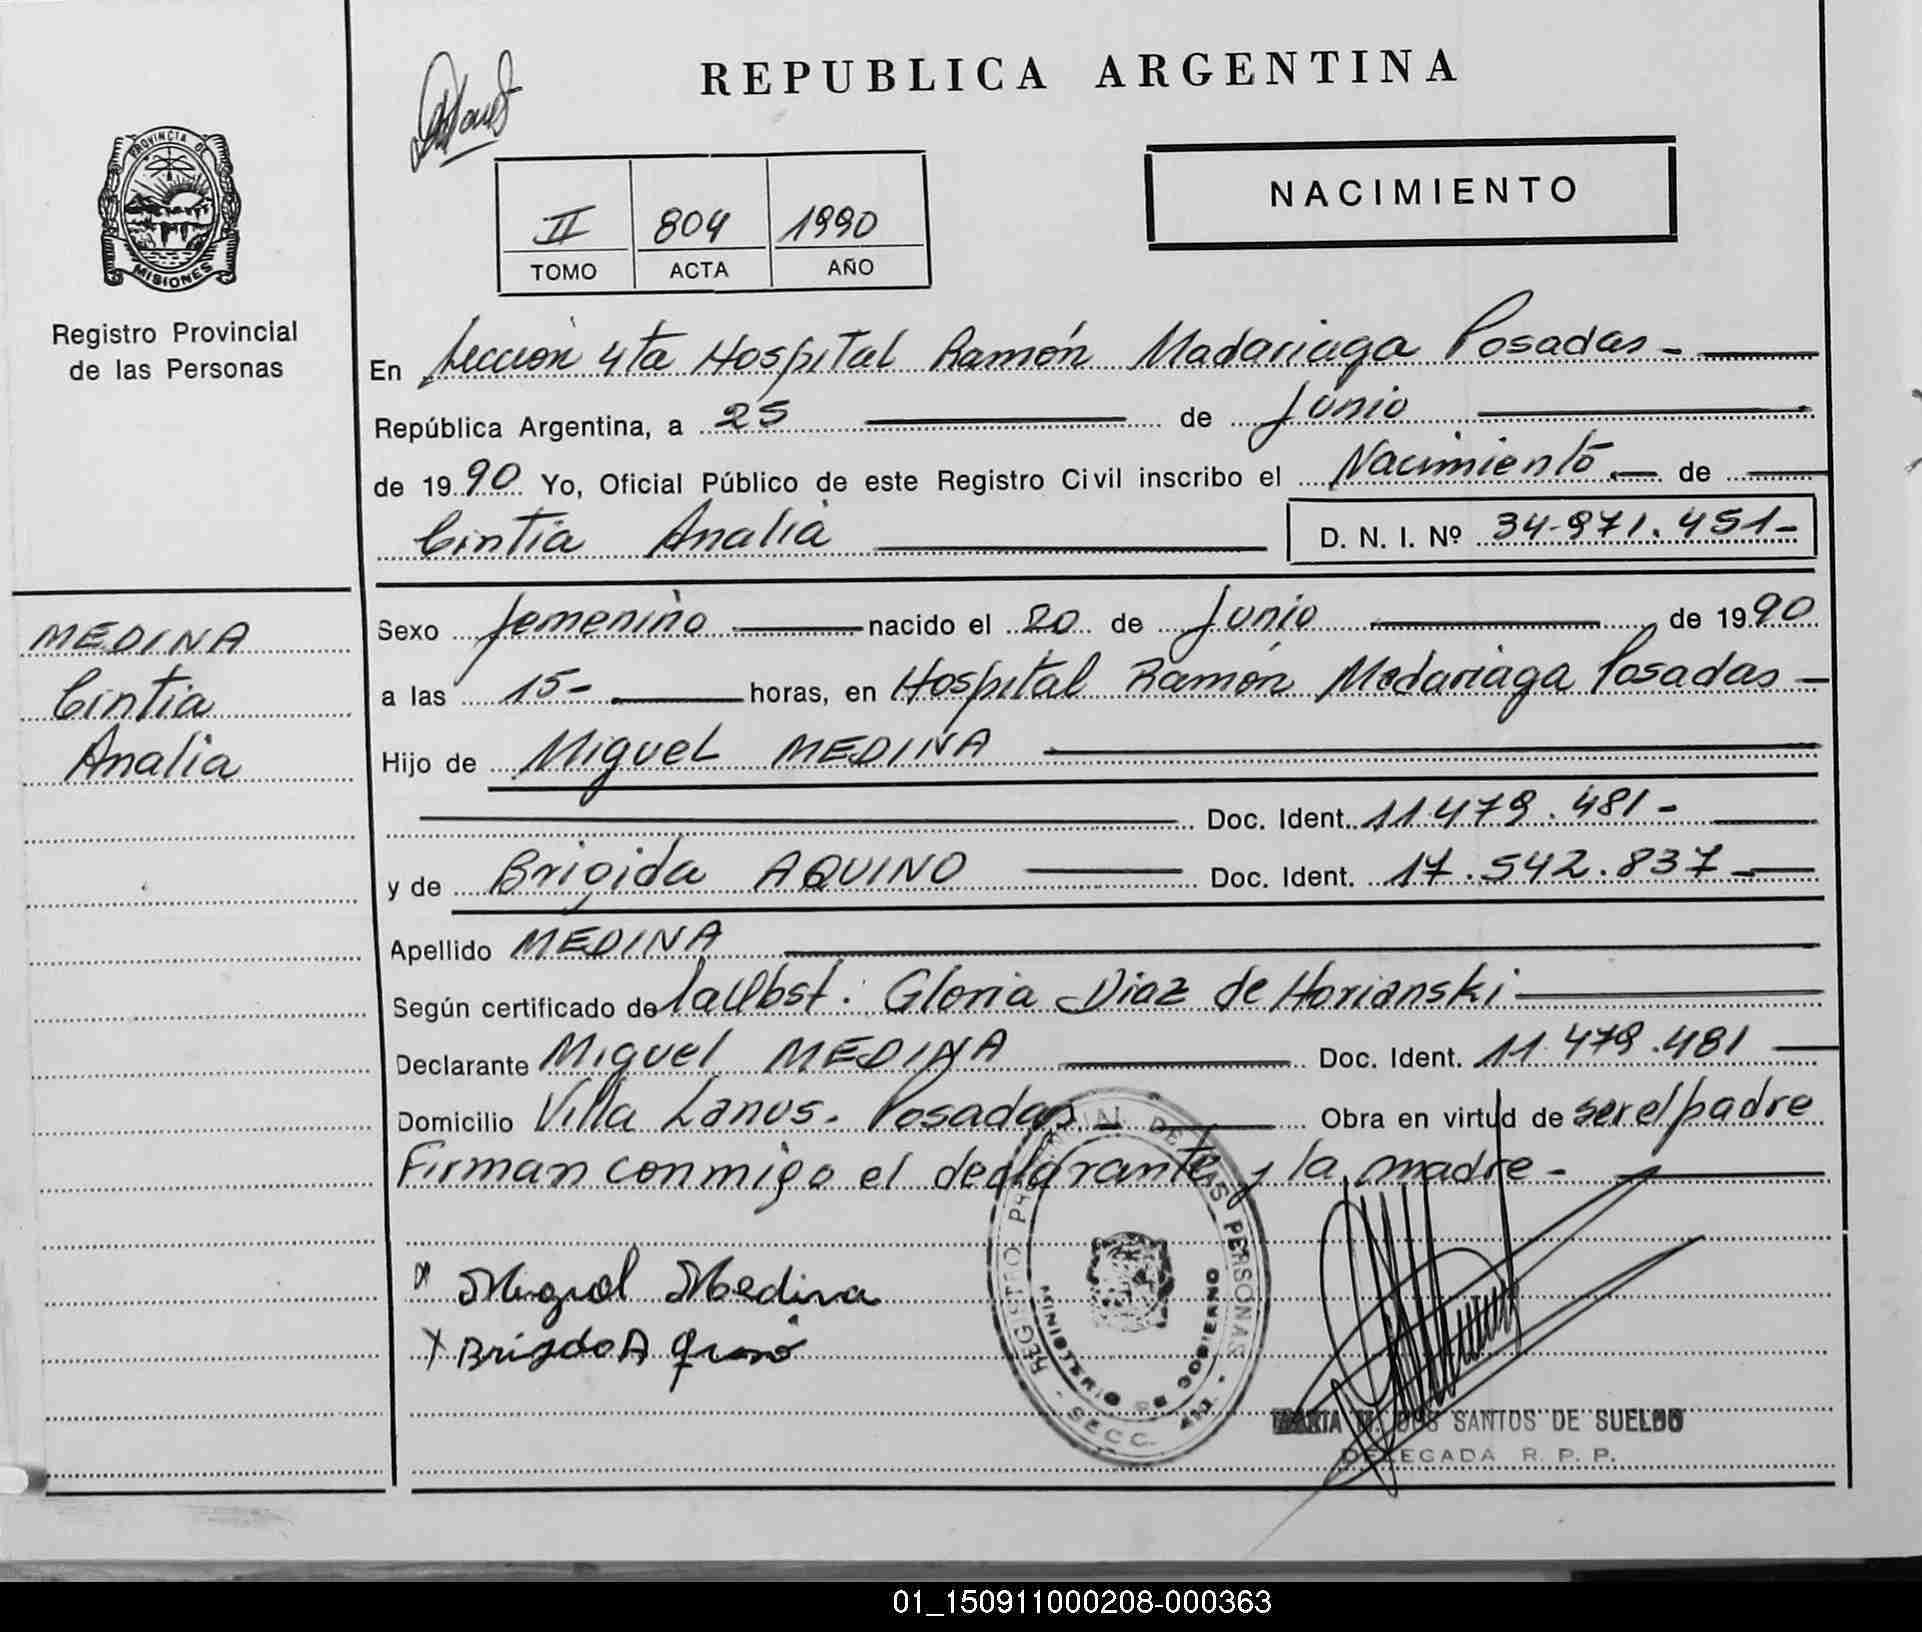 REPUBLICA ARGENTINA
PROVINCIA DE
MISIONES
Registro Provincial
de las Personas
NACIMIENTO
II 804 1990
TOMO ACTA AÑO
En Sección 4ta Hospital Ramón Madariaga Posadas -
República Argentina, a 25 de Junio
de 1990 Yo, Oficial Público de este Registro Civil inscribo el Nacimiento de
Cintia Analia D. N. I. Nº 34.971.451-
MEDINA
Cintia
Analia
Sexo femenino nacido el 20 de Junio de 1990
a las 15- horas, en Hospital Ramón Madariaga Posadas -
Hijo de Miguel MEDINA
Doc. Ident. 11.479.481-
y de Brigida AQUINO Doc. Ident. 17.542.837-
Apellido MEDINA
Según certificado de la Obst. Gloria Diaz de Horianski
Declarante Miguel MEDINA Doc. Ident. 11.479.481
Domicilio Villa Lanus. Posadas - Obra en virtud de ser el padre
Firman conmigo el declarante y la madre -
x Miguel Medina
x
REGISTRO PROVINCIAL DE LAS PERSONAS - SECC.
MINISTERIO DE GOBIERNO
DOS SANTOS DE SUELDO
DELEGADA R. P. P.
01_150911000208-000363